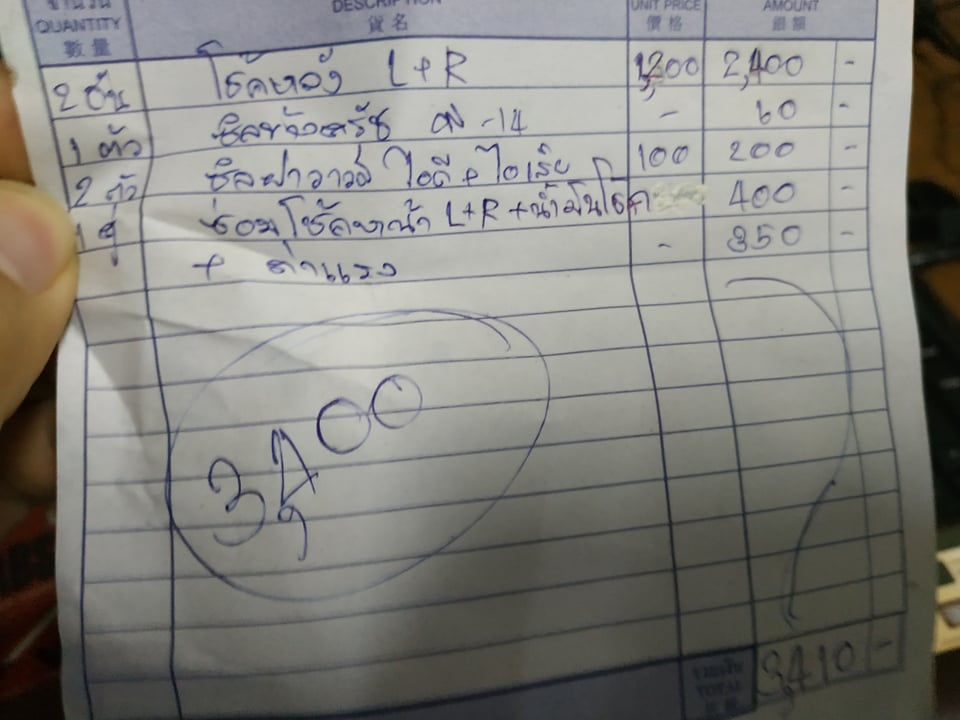 จำนวน DESCRIPTION UNIT PRICE AMOUNT
QUANTITY 貨名 價格 銀額
數量
2 อัน โช๊คหลัง L+R 1,200 2,400 -
1 ตัว ซีลข้างครัช - 14 - 60 -
2 ตัว ซีลฝาวาวล์ ไอดี + ไอเสีย 100 200 -
1 คู่ ซ่อมโช๊คหน้า L+R + น้ำมันโช๊ค 400 -
+ ค่าแรง - 350 -
3400
รวมเงิน
TOTAL 3,410 -